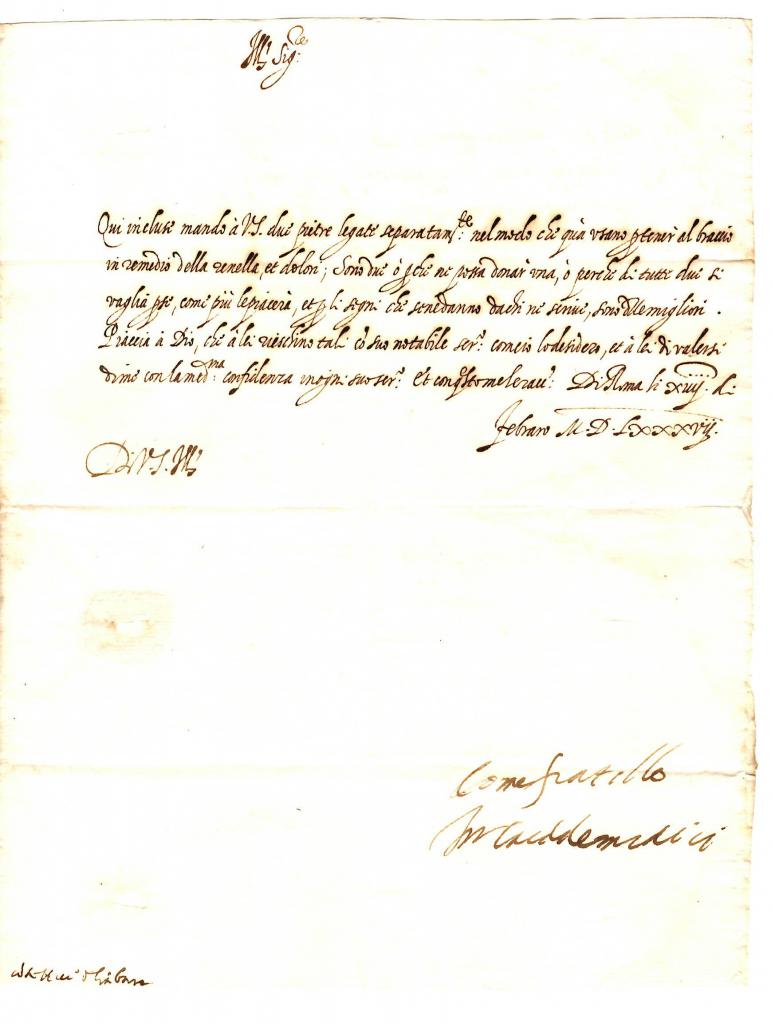 Ill. Sig.re
Qui incluse mando à V.S. due pietre legate separatam.te nel modo che quà usano p tener al braccio
in remedio della renella, et dolori; Sono due ò p che ne possa donar una, ò perche di tutte due si
vaglia, come più le piacerà, et p li segni che se ne danno da chi ne scrive, sono delle migliori.
Piaccia à Dio, che à lei rieschino tali cõ suo notabile ser.º com'io lo desidero, et à lei di valersi
di me con la med.ma confidenza in ogni suo ser.º Et con q̃sto me le racc.º Di Roma li xiiij di
Febraro M.D.LXXXVij.
Di V.S. Ill.
Come fratello
Il Card de medici